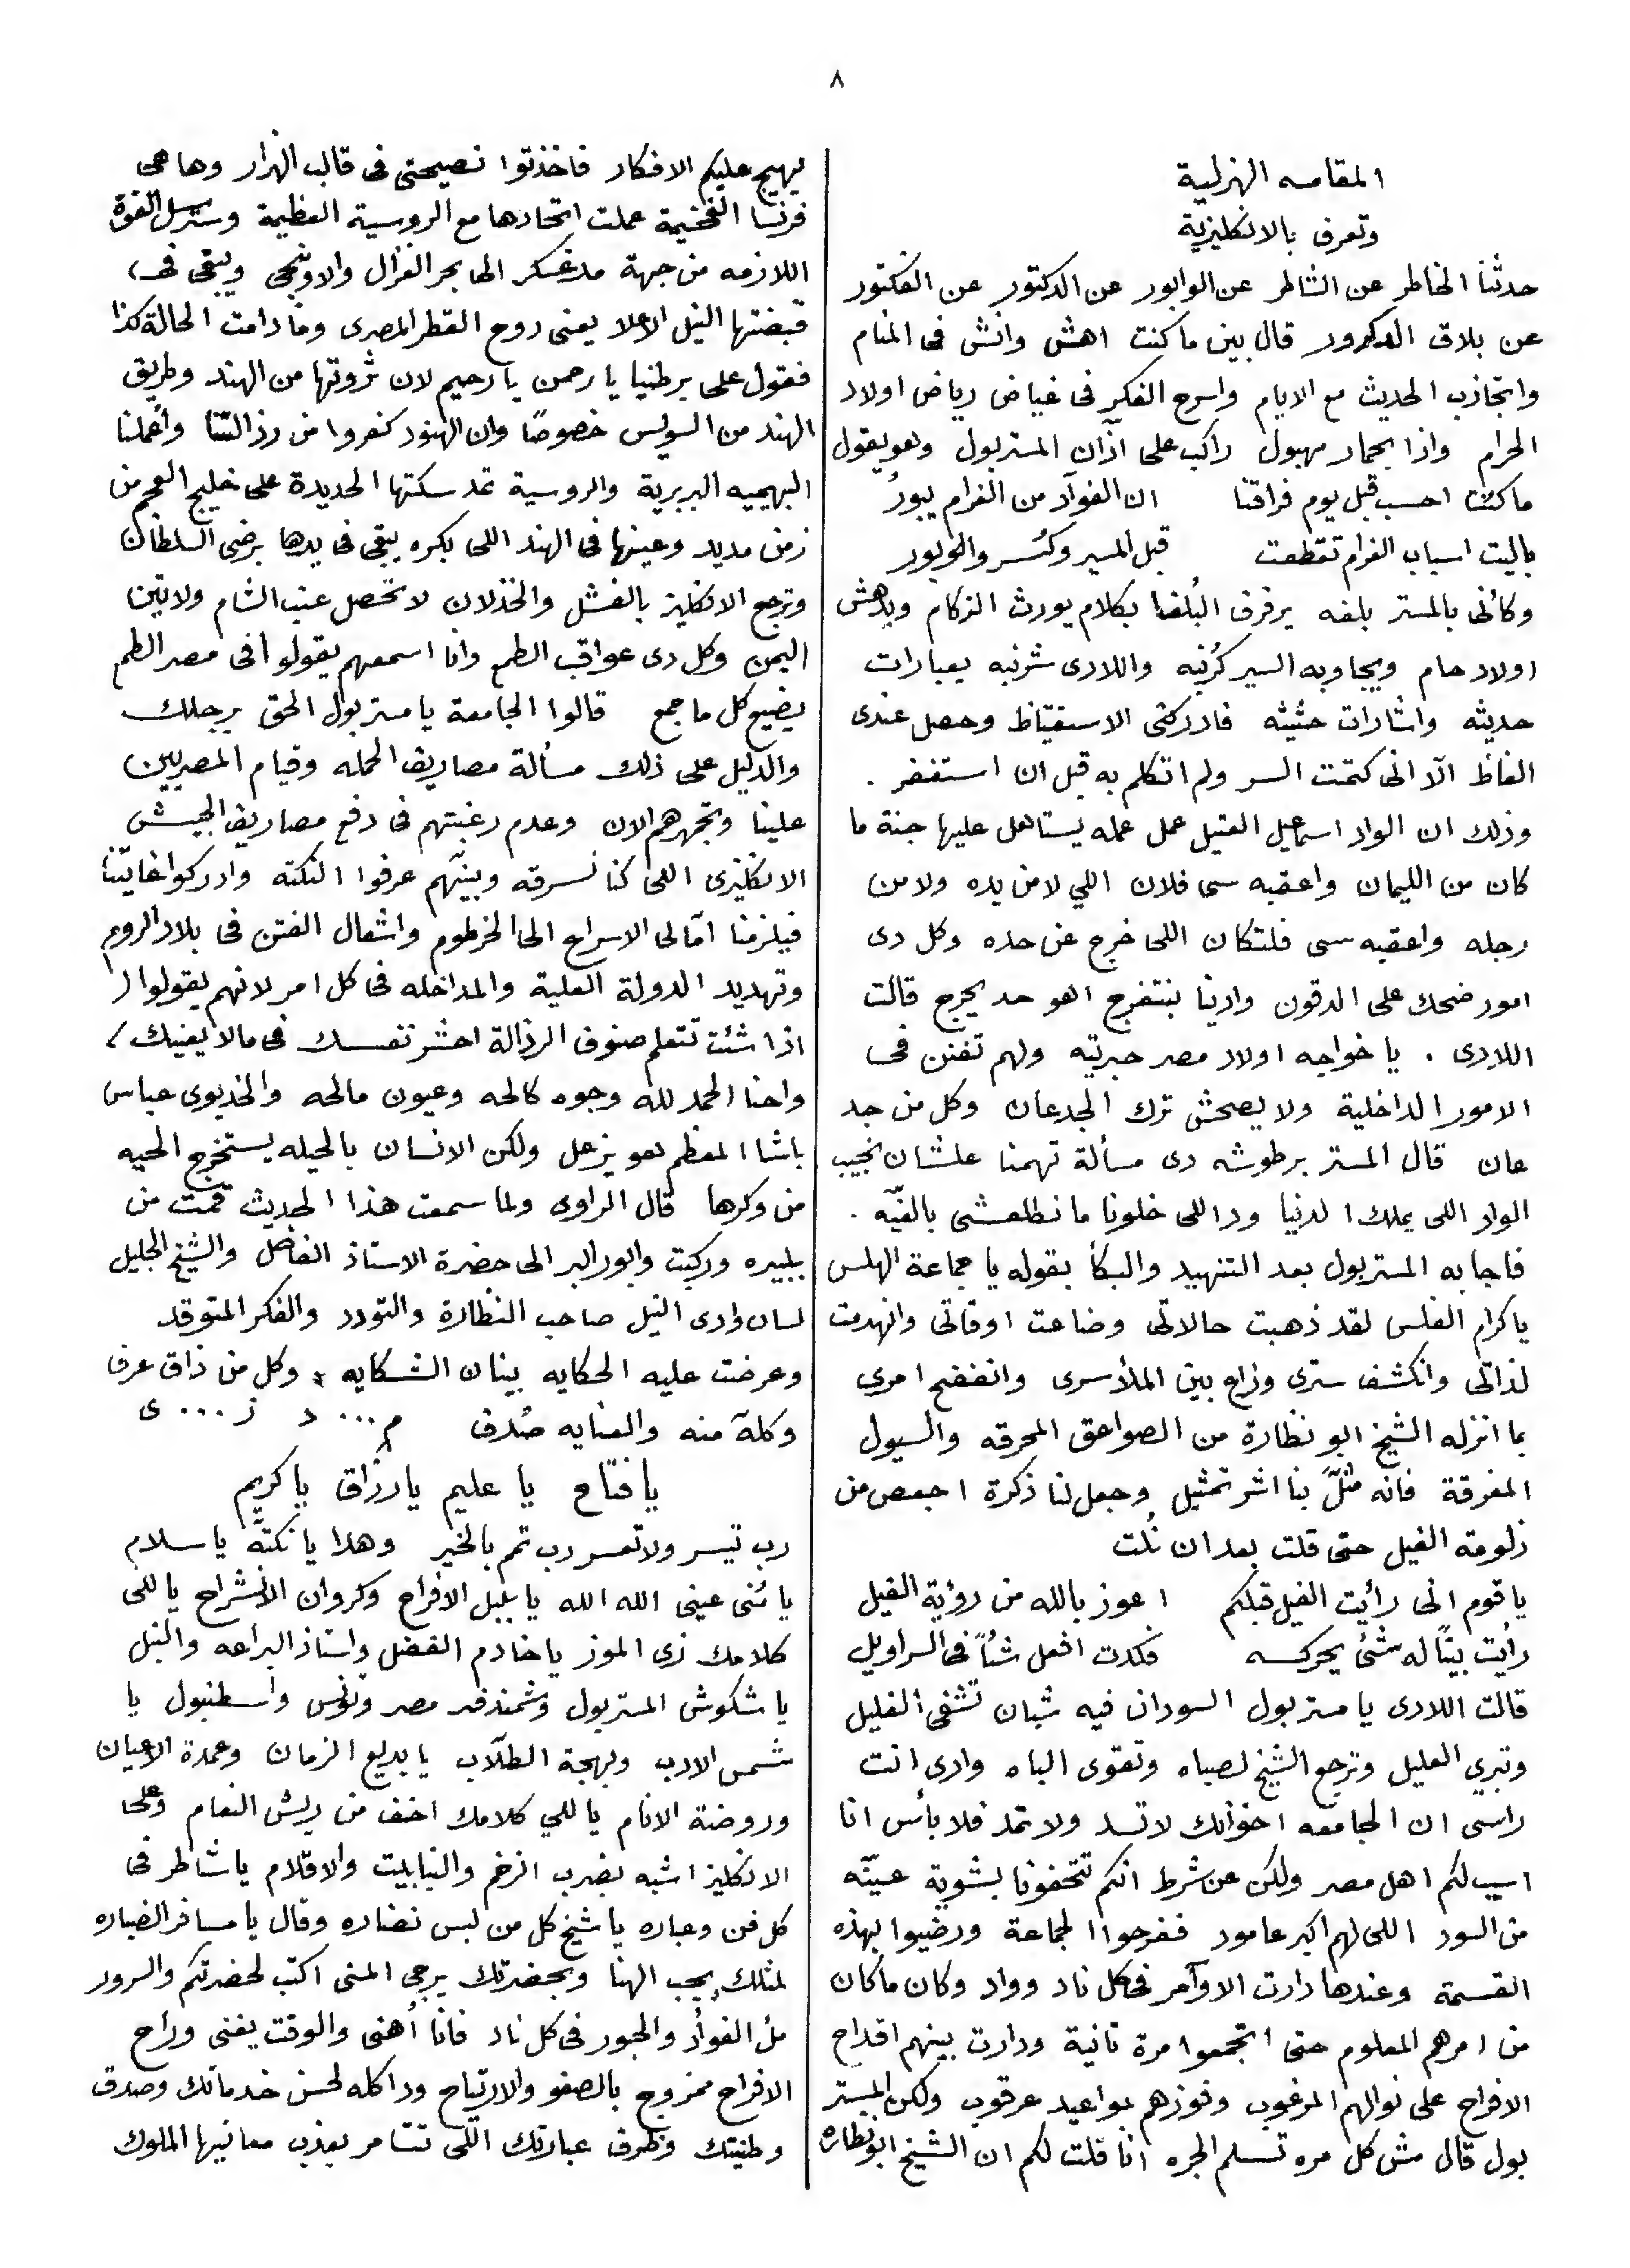 ٨
المقامه الهزلية
وتعرف بالانكليزية
حدثنا الخاطر عن الشاطر عن الوابور عن الدكتور عن الفكتور
عن بلاق الدكرور قال بين ما كنت اهش وانش فى المنام
واتجاذب الحديث مع الايام واسرح الفكر فى غياض رياض اولاد
الحرام واذا بحمار مهبول راكب على اذآن المستر بول وهو يقول
ما كنت احسب قبل يوم فراقنا ان الفوآد من الغرام يبور
ياليت اسباب الغرام تقطعت قبل المسير وكسر والوابور
وكأنى بالمستر بلفه يرفرف البلغا بكلام يورث الزكام ويدهش
اولاد حام ويجاوبه السير كرنبه واللادى شرنبه بعبارات
حديثه واشارات حثيثه فادركنى الاستقياظ وحصل عندى
الغاظ الّا انى كتمت السر ولم اتكلم به قبل ان استغفر .
وذلك ان الواد اسمعيل العتيل عمل عمله يستاهل عليها جنة ما
كان من الليمان واعقبه سى فلان اللي لا من يده ولا من
رجله واعقبه سى فلتكان اللى خرج عن حده وكل دى
امور ضحك على الدقون وادينا بنتفرج اهو حد يحرج قالت
اللادى . يا خواجه اولاد مصر جبرتيه ولهم تفنن فى
الامور الداخلية ولا يصحش ترك الجدعان وكل من جد
عان قال المستر برطوشه دى مسألة تهمنا علشان نجيب
الواد اللى يملك الدنيا ود اللى خلونا ما نطلعشى بالفيّه .
فاجابه المستر بول بعد التنهيد والبكأ بقوله يا جماعة الهلس
يا كرام الفلس لقد ذهبت حالاتى وضاعت اوقاتى وانهدمت
لذاتى وانكشف سترى وزاع بين الملأ سرى وانفضح امرى
بما انزله الشيخ ابو نظارة من الصواعق المحرقه والسيول
المغرقة فانه مثّل بنا اشر تمثيل وجعل لنا ذكرة اجعص من
زلومة الفيل حتى قلت بعد ان نُلت
يا قوم انى رأيت الفيل قبلكم اعوز بالله من رؤية الفيل
رأيت بيتًا له شئ يحركه فكدت افعل شئًا فى السراويل
قالت اللادى يا مستر بول السودان فيه شبان تشفى الغليل
وتبري العليل وترجع الشيخ لصباه وتقوى الباه وادى انت
راسى ان الجامعه اخوانك لا تسد ولا تمد فلا بأس انا
اسيب لكم اهل مصر ولكن عن شرط انكم تتحفونا بشوية عينّه
من السود اللى لهم اكبر عامود ففرحوا الجماعة ورضيوا بهذه
القسمة وعندها دارت الاوآمر فى كل ناد وواد وكان ما كان
من امرهم المعلوم حتى اتجمعوا مرة تانية ودارت بينهم اقداح
الافراح على نوالهم المرغوب وفوزهم بمواعيد عرقوب ولكن المستر
بول قال مش كل مره تسلم الجره انا قلت لكم ان الشيخ ابو نظاره
يهيج عليكم الافكار فاخذتوا نصيحتى فى قالب الهزار وها هى
فرنسا الفخيمة عملت اتحادها مع الروسية العظيمة وسترسل القوة
اللازمه من جهة مدغسكر الى بحر الغزال والاوبنجى ويبقى فى
قبضتها النيل الاعلا يعنى روح القطر المصرى وما دامت الحالة كذا
فقول على برطنيا يا رحمن يا رحيم لان ثروتها من الهند وطريق
الهند من السويس خصوصًا وان الهنود كفروا من رذالتنا وأعملنا
البهيميه البربرية والروسية تمد سكتها الحديدة على خليج العجم من
زمن مديد وعينها فى الهند اللى بكره يبقى فى يدها برضى السلطان
وترجع الانكليز بالفشل والخذلان لا تحصل عنب الشام ولا تين
اليمن وكل دى عواقب الطمع وانا اسمعهم يقولوا فى مصر الطمع
يضيع كل ما جمع قالوا الجامعة يا مستر بول الحق برجلك
والدليل على ذلك مسألة مصاريف الحمله وقيام المصريين
علينا وتجمهرهم الان وعدم رغبتهم فى دفع مصاريف الجيش
الانكليزى اللى كنا نسرقه وبينّهم عرفوا النكته وادركوا غايتنا
فيلزمنا امّا لى الاسراع الى الخرطوم واشعال الفتن فى بلاد الروم
وتهديد الدولة العلية والمداخله فى كل امر لانهم يقولوا (
اذا شئت تتعلم صنوف الرذالة احشر نفسك فى مالا يعنيك )
واحنا الحمد لله وجوه كالحه وعيون مالحه والخديوى عباس
باشا المعظم هو يزعل ولكن الانسان بالحيله يستخرج الحيه
من وكرها قال الراوى ولما سمعت هذا الحديث قمت من
بلبيره وركبت وابور البر الى حضرة الاستاذ الفاضل والشيخ الجليل
لسان وادى النيل صاحب النظارة والتودد والفكر المتوقد
وعرضت عليه الحكايه ببنان الشكايه ، وكل من ذاق عرف
وكلهّ منه والعنايه صُدف م... د ز... ى
يا فتاح يا عليم يا رزاق يا كريم
رب تيسر ولا تعسر رب تمم بالخير وهدا يا نكتة يا سلام
يا مُنى عينى الله الله يا بلبل الافراح وكروان الانشراح يا للى
كلامك زى الموز يا خادم الفضل واستاذ البراعه والنبل
يا شكوش المستر بول وشمندفر مصر وتونس واسطنبول يا
شمس الادب وبهجة الطلّاب يا بديع الزمان وعمدة الاعيان
وروضة الانام يا للي كلامك اخف من ريش النعام وعلى
الانكليز اشبه بضرب الزخم والنبابيت والاقلام يا شاطر فى
كل فن وعباره يا شيخ كل من لبس نضاره وقال يا مسافر الضباره
لمثلك يجب الهنا وبحضرتك يرجى المنى اكتب لحضرتكم والسرور
ملأ الفوأد والحبور فى كل ناد فانا أهنى والوقت يغنى وراح
الافراح ممزوج بالصفو والارتياح ودا كله لحسن خدماتك وصدق
وطنيتك وظرف عبارتك اللى تتسامر بعذب معانيها الملوك